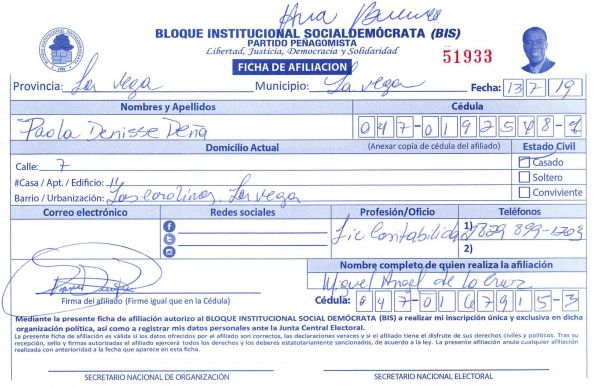 Ana
BLOQUE INSTITUCIONAL SOCIALDEMÓCRATA (BIS)
PARTIDO PEÑAGOMISTA
Libertad, Justicia, Democracia y Solidaridad
51933
FICHA DE AFILIACION
Provincia: La vega Municipio: La vega Fecha: 13 7 19
Nombres y Apellidos Cédula
Paola Denisse Peña 047-0192548-
Domicilio Actual (Anexar copia de cédula del afiliado) Estado Civil
Calle: 7 Casado
#Casa / Apt. / Edificio: 11 Soltero
Barrio / Urbanización: Las carolinas, La vega Conviviente
Correo electrónico Redes sociales Profesión/Oficio Teléfonos
Lic Contabilidad 1) 829 899-1203
2)
Nombre completo de quien realiza la afiliación
Miguel Angel de la Cruz
Firma del afiliado (Firme igual que en la Cédula) Cédula: 047-0167915-3
Mediante la presente ficha de afiliación autorizo al BLOQUE INSTITUCIONAL SOCIAL DEMÓCRATA (BIS) a realizar mi inscripción única y exclusiva en dicha
organización política, así como a registrar mis datos personales ante la Junta Central Electoral.
La presente ficha de afiliación es válida si los datos ofrecidos por el afiliado son correctos, las declaraciones veraces y si el afiliado tiene el disfrute de sus derechos civiles y políticos. Tras su
recepción, sello y firmas autorizadas el afiliado ejercerá todos los derechos y los deberes estatutariamente sancionados, de acuerdo a la ley. La presente afiliación anula cualquier afiliación
realizada con anterioridad a la fecha que aparece en esta ficha.
SECRETARIO NACIONAL DE ORGANIZACIÓN SECRETARIO NACIONAL ELECTORAL